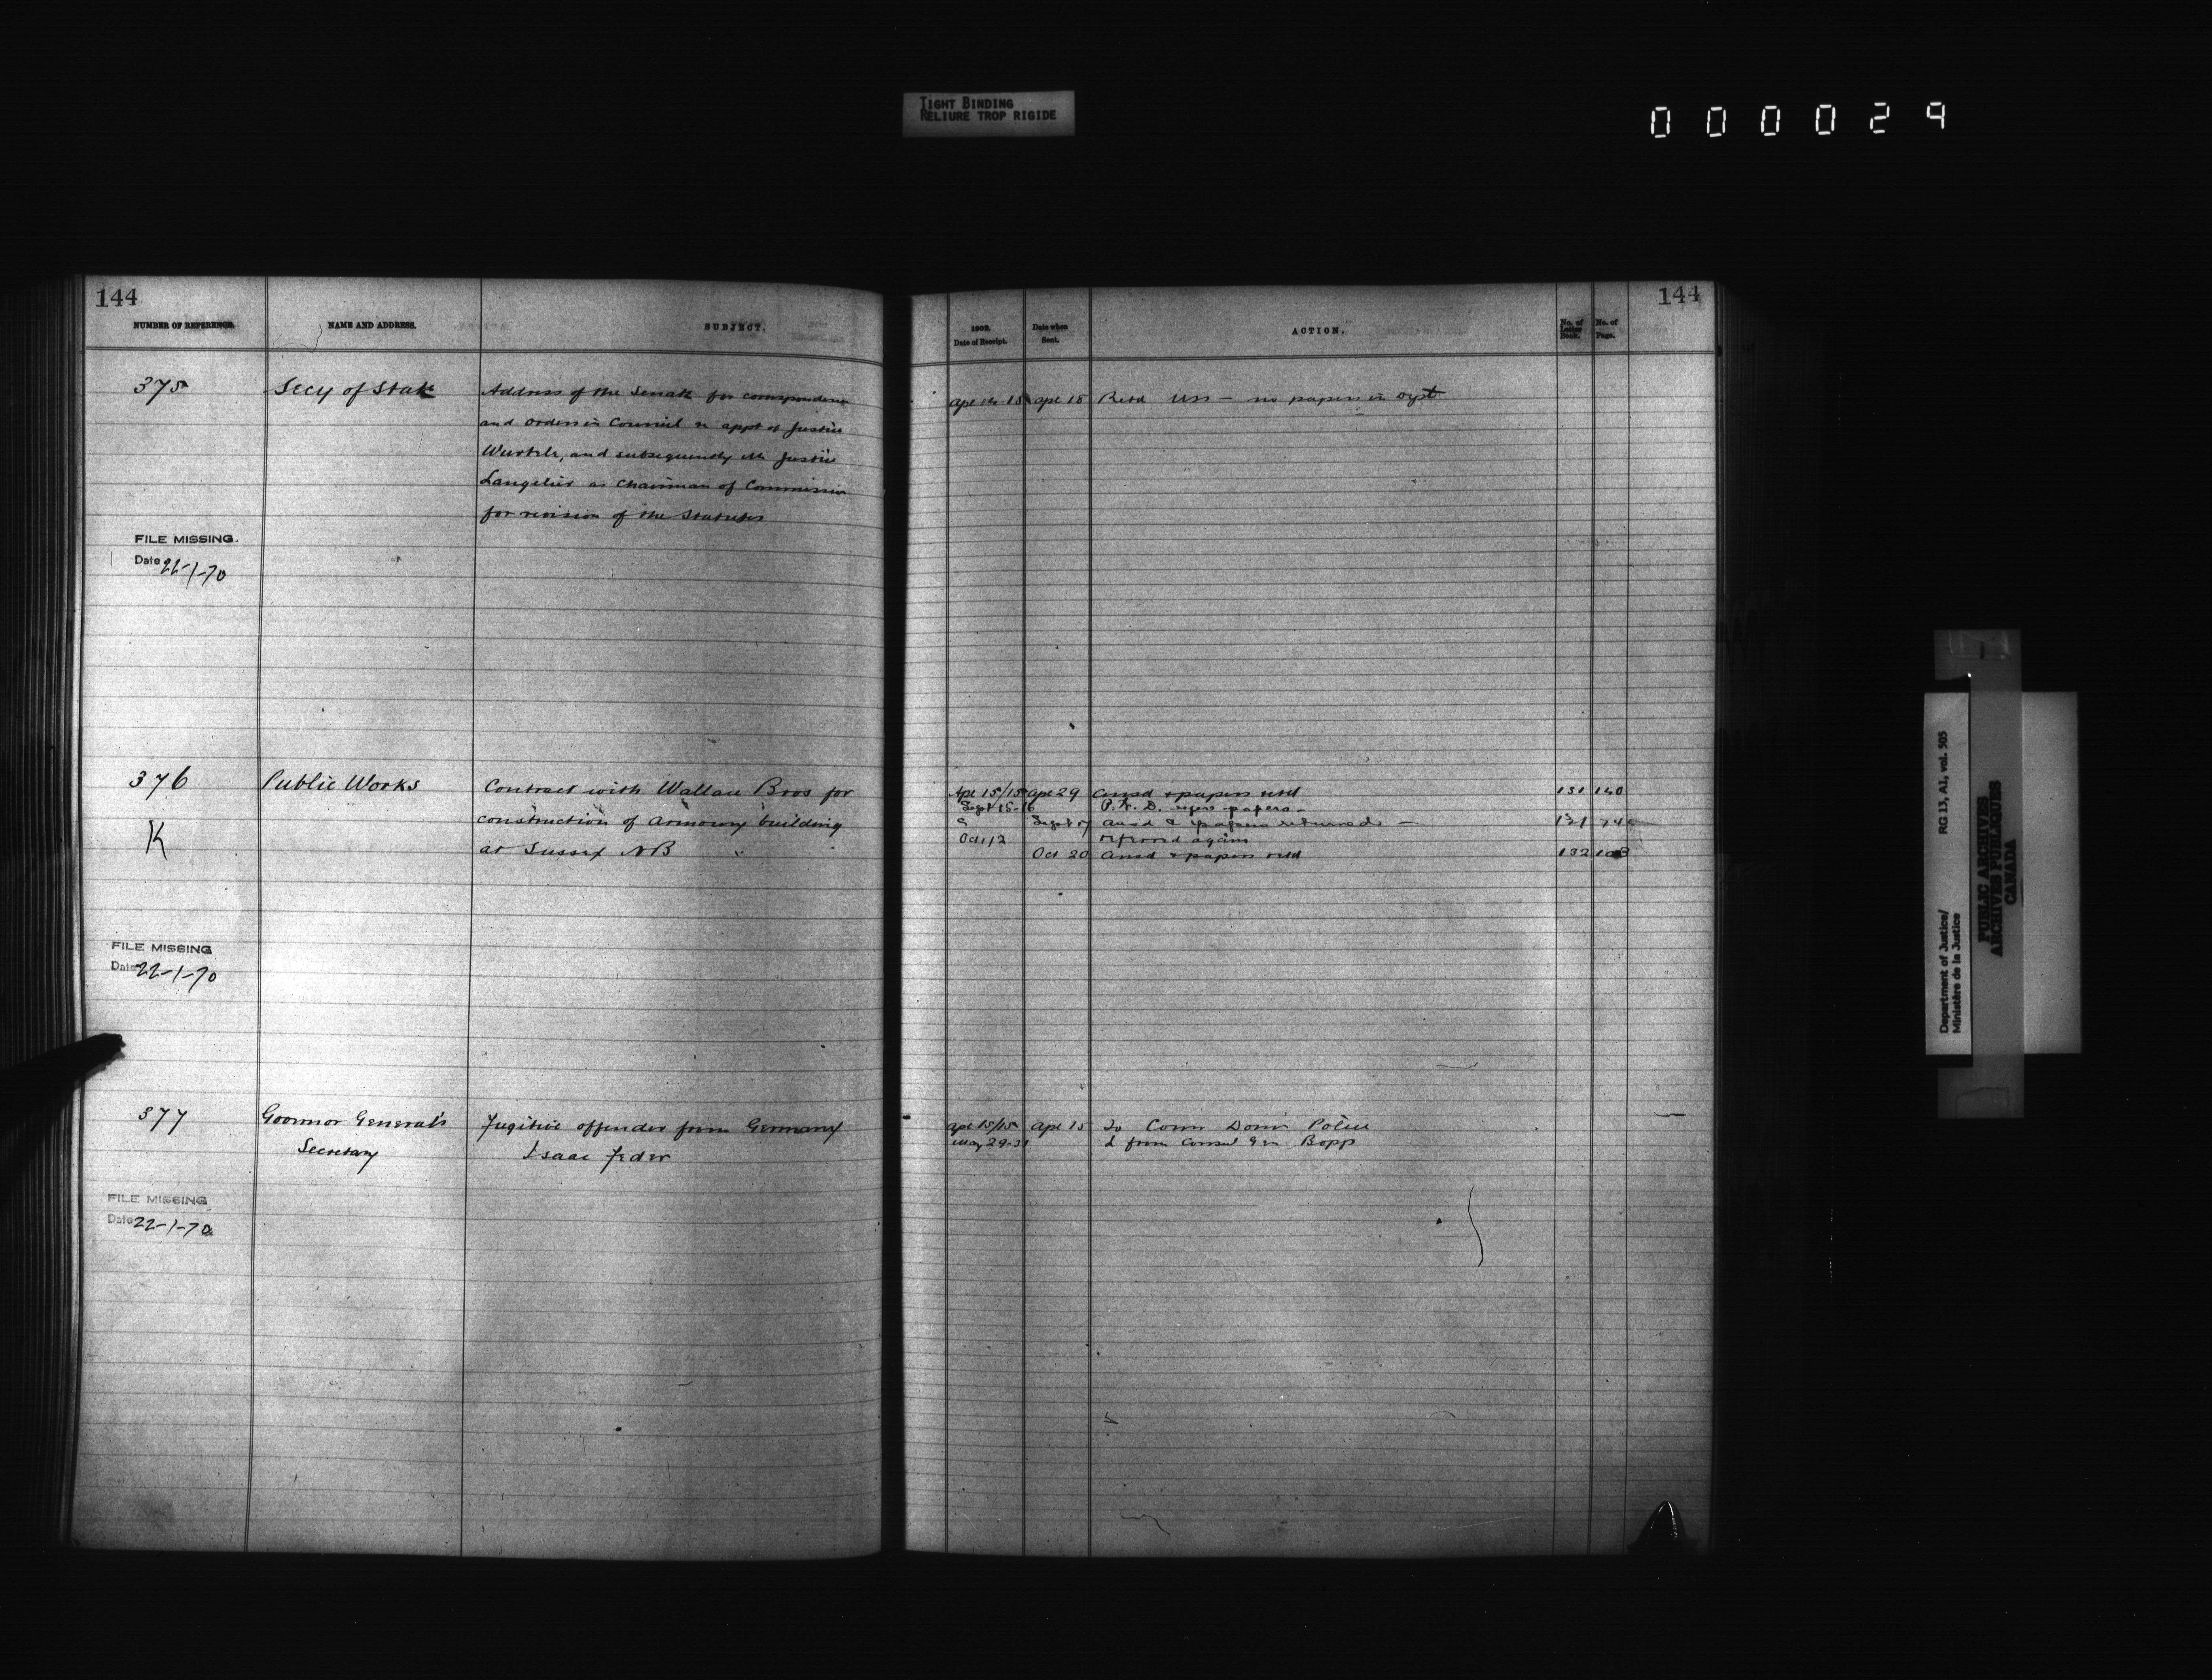 TIGHT BINDING
RELIURE TROP RIGIDE
000029
144
NUMBER OF REFERENCE.
NAME AND ADDRESS.
SUBJECT.
375
Secy of State
Address of the Senate for correspondence
and orders in Council re appt of Justice
Wurtele, and subsequently Mr Justice
Langelier as Chairman of Commission
for revision of the Statutes
FILE MISSING.
Date 22-1-70
376
Public Works
Contract with Wallace Bros for
construction of Armoury building
at Sussex NB
K
FILE MISSING
Date 22-1-70
377
Governor General's
Secretary
Fugitive offender from Germany
Isaac Feder
FILE MISSING
Date 22-1-70
144
1902.
Date of Receipt.
Date when
Sent.
ACTION.
No. of
Letter
Book.
No. of
Page.
Apl 14 15 Apl 18 Retd no papers in Dept
Apl 15/15 Apl 29 ansd & papers retd 131 140
Sept 15-16 P. W. D. papers
Sept 17 ansd & papers returned 131
Oct 12 referred again
Oct 20 ansd & papers retd 132
Apl 15/15 Apl 15 To Comr Domn Police
May 29-31 L from Consul Gen Bopp
Department of Justice/
Ministère de la Justice
RG 13, A1, vol. 505
PUBLIC ARCHIVES
ARCHIVES PUBLIQUES
CANADA